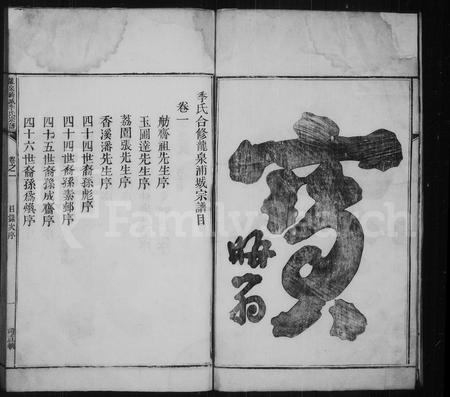 寶
晦翁
季氏合修龍泉浦城宗譜目
卷一
勉齋祖先生序
玉圃逵先生序
荔園張先生序
香溪潘先生序
四十四世裔孫彪序
四十四世裔孫素郵序
四十五世裔孫成齋序
四十六世裔孫序
卷之一
目錄次序
一
FamilySearch